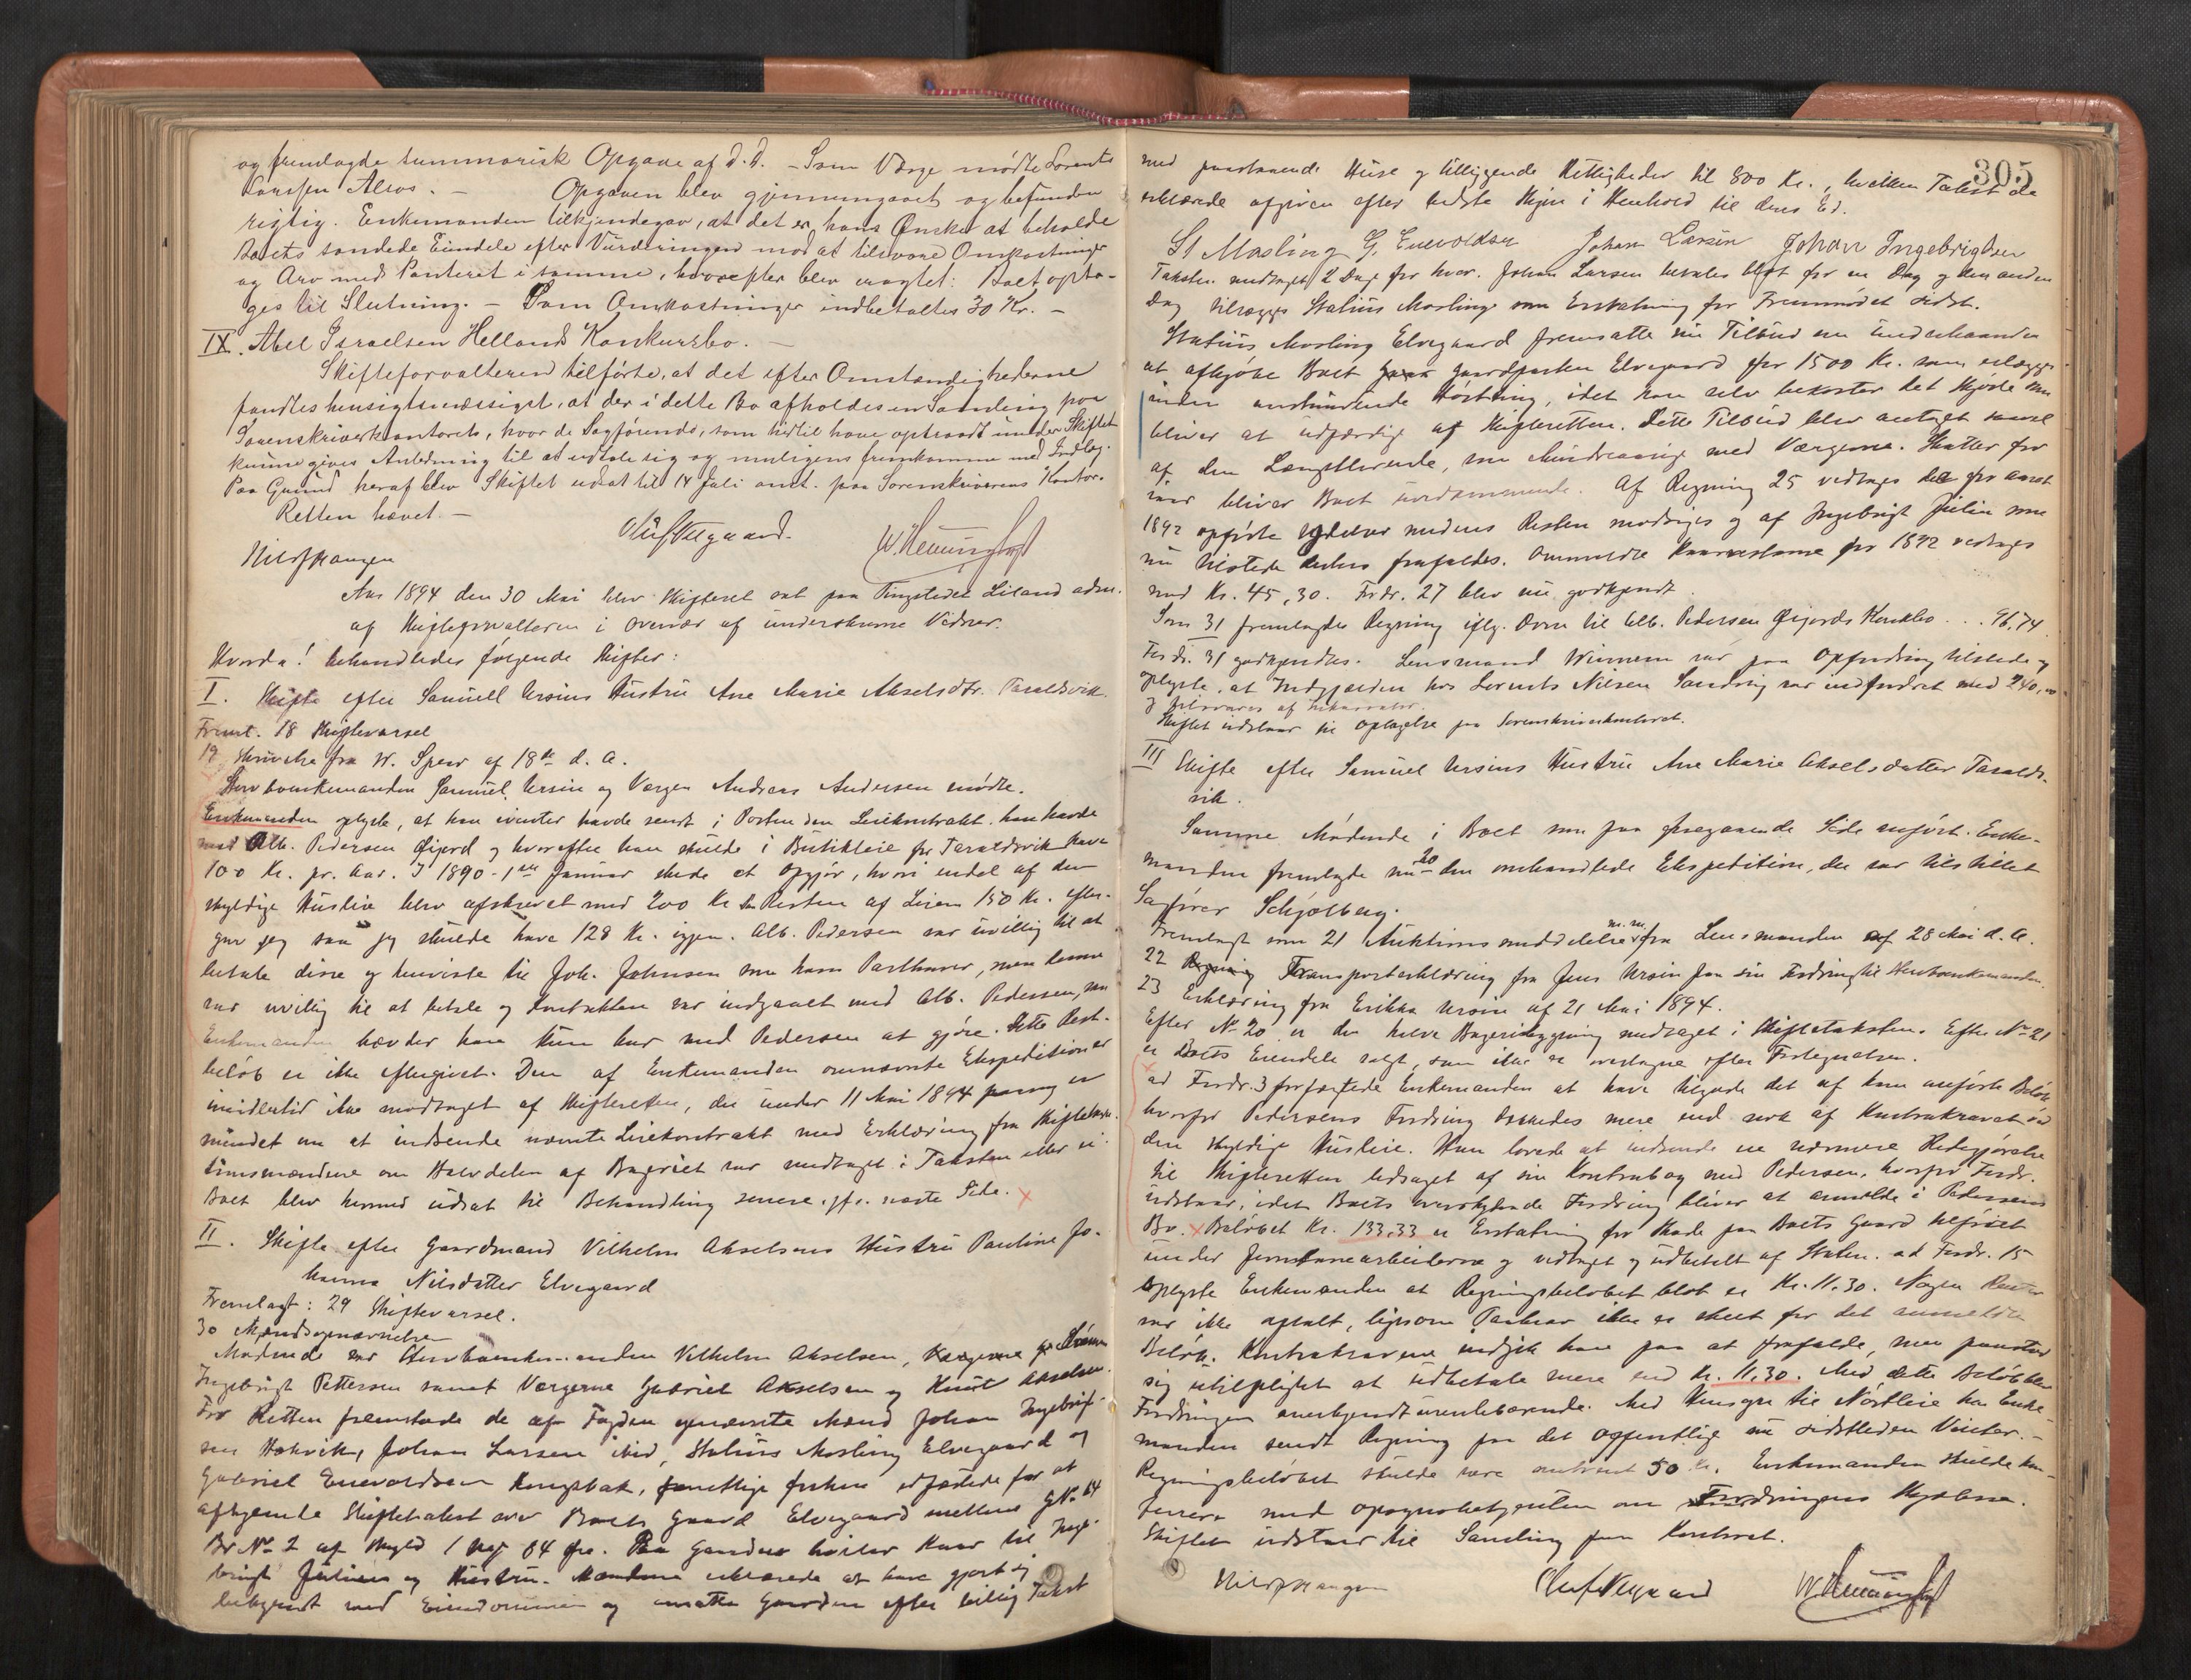 og fremlagde summarisk Opgave af d. d. - Som Værge mødte Lorents
Alsos. - Opgaven blev gjennemgaaet og befunden
rigtig. Enkemanden tilkjendegav, at det er hans Ønske at beholde
Boets samlede Eiendele efter Vurderingen mod at tilsvare Omkostninger
og Arv med Panteret i samme, hvorefter blev eragtet: Boet opta-
ges til Slutning. - Som Omkostninger indbetaltes 30 Kr. -
IX. Abel Israelsen Hellands Konkursbo. -
Skifteforvalteren tilførte, at det efter Omstændighederne
fandtes hensigtsmæssigst, at der i dette Bo afholdes en Samling paa
Sorenskriverkontoret, hvor de Sagførende, som hidtil have optraadt under Skiftet
kunne gives Anledning til at udtale sig og muligens fremkomme med Indlæg.
Paa Grund heraf blev Skiftet udsat til 14 Juli anst. paa Sorenskriverens Kontor.
Retten hævet. -
Nils Haugen Oluf Vegaard. W. Henningsen
Aar 1894 den 30 Mai blev Skifteret sat paa Tingstedet Liland adm.
af Skifteforvalteren i Overvær af underskrevne Vidner.
Hvorda! behandledes følgende Skifter:
I. Skifte efter Samuel Ursins Hustru Ane Marie Akselsdtr. Taraldsvik.
Fremt. 18 Skiftevarsel
19 Skrivelse fra W. Spear af 18de d. A.
Stervboenkemanden Samuel Ursin og Værgen Andreas Andersen mødte.
Enkemanden oplyste, at han ivinter havde sendt i Posten den Leiekontrakt han havde
med Alb. Pedersen Øijord og hvorefter han skulde i Butikleie for Taraldsvik have
100 Kr. pr. Aar. I 1890 - 1ste Januar skede et Opgjør, hvori endel af den
skyldige Husleie blev afskrevet med 200 Kr. Resten af Leien 150 Kr. efter-
gav jeg saa jeg skulde have 128 Kr. igjen. Alb. Pedersen var uvillig til at
betale disse og henviste til Joh. Johnsen som hans Parthaver, men denne
var uvillig til at betale og Kontrakten var indgaaet med Alb. Pedersen, som
Enkemanden hævder han kun har med Pedersen at gjøre. Dette Rest-
beløb er ikke eftergivet. Den af Enkemanden omnævnte Ekspedition er
imidlertid ikke modtaget af Skifteretten, der under 11 Mai 1894 paany er
mindet om at indsende nævnte Leiekontrakt med Erklæring fra Skiftetakst-
tionsmændene om Halvdelen af Bageriet var medtaget i Taksten eller ei.
Boet blev hermed udsat til Behandling senere. jfr. næste Side. x
II. Skifte efter Gaardmand Vilhelm Akselsens Hustru Pauline Jo-
hanna Nilsdatter Elvegaard
Fremlagt: 29 Skiftevarsel.
30 Mændsopnævnelsen
Mødende var Stervboenkemanden Vilhelm Akselsen, Værgerne
Ingebrigt Pettersen samt Værgerne Gabriel Akselsen og Knut Akselsen.
For Retten fremstode de af Fogden opnævnte Mænd Johan Ingebrigt-
sen Hakvik, Johan Larsen ibid, Statius Mosling Elvegaard og
Gabriel Enevoldsen Kongsbak, edfæstede for at
afhjemle Skiftetakst over Boets Gaard Elvegaard mellem G.Nr. 64
Br. No 2 af Skyld 1 Mrk 64 Øre. Paa Gaarden hviler Kaar til Inge-
brigt Julius og Hustru. Mændene erklærede at have gjort sig
bekjendt med Eiendommen og ansatte Gaarden efter billig Takst
305
med paastaaende Huse og tilliggende Rettigheder til 800 Kr., hvilken Takst de
erklærede afgiven efter bedste Skjøn i Henhold til deres Ed.
St Mosling G. Enevoldsen Johan Larsen Johan Ingebrigtsen
Taksten medtoges 2 Dage for hver. Johan Larsen betales blot for en Dag og den anden
Dag tillægges Statius Mosling som Erstatning for Fremmødet sidst.
Statius Mosling Elvegaard fremsatte nu Tilbud om underhaanden
at afkjøbe Boet Gaardparten Elvegaard for 1500 Kr. som erlægges
inden anstundende Høstting, idet han selv bekoster det Skjøde som
bliver at udfærdige af Skifteretten. Dette Tilbud blev antaget saavel
af den Længstlevende, som Mindreaarige med Værgerne. Skatter for
iaar bliver Boet uvedkommende. Af Regning 25 vedtages de for Aaret
1892 opførte Ydelser medens Resten modsiges og af Ingebrigt Julius som
nu tilstede frafaldes. Anmeldte for 1892 vedtages
med Kr. 45,30. Fordr. 27 blev nu godkjendt.
Som 31 fremlagdes Regning iflg. Dom til Alb. Pedersen Øijords Konkbo ... 96,74
Fordr. 31 godkjendtes. Lensmand Winnem var paa Opfordring tilstede og
oplyste, at Indgjælden hos Lorents Nilsen Sandvig var indfordret med 240,00
og tilsvares af Inkassator.
Skiftet udstaar til Optagelse paa Sorenskriverkontoret.
III Skifte efter Samuel Ursins Hustru Ane Marie Akselsdatter Taralds-
vik.
Samme Mødende i Boet som paa foregaaende Side anført. Enke-
manden fremlagde nu 20 den omhandlede Ekspedition, der var tilstillet
Sagfører Schjølberg.
Fremlagt som 21 Auktionsmeddelelse m.m. fra Lensmanden af 28 Mai d. A.
22 Transporterklæring fra Jens Ursin paa sin Fordring til Stervboenkemanden.
23 Erklæring fra Erikka Ursin af 21 Mai 1894.
Efter No 20 er den halve Bageribygning medtaget i Skiftetaksten. Efter No 21
er Boets Eiendele solgt, som ikke er overtagne efter Fortegnelsen.
x ad Fordr. 3 forfægtede Enkemanden at have tilgode det af ham anførte Beløb
hvorfor Pedersens Fordring dækkedes mere end nok af Kontrakravet
den skyldige Husleie. Han lovede at indsende en nærmere Redegjørelse
til Skifteretten ledsaget af sin Kontrabog med Pedersen, hvorfor Fordr.
udstaar, idet Boets overskydende Fordring bliver at anmelde i Pedersens
Bo. x Beløbet Kr. 133,33 er Erstatning for Skade paa Boets Gaard tilføiet
under Jernbanearbeiderne og vedtaget og udbetalt af Staten. ad Fordr. 15
oplyste Enkemanden at Regningsbeløbet blot er Kr. 11.30. Nogen Renter
var ikke aftalt, ligesom Paakrav ikke er skeet for det anmeldte
Beløb. Kontrakravene indgik han paa at frafalde, men paastod
sig upligtet at udbetale mere end Kr. 11,30. Med dette Beløb blev
Fordringen anerkjendt urentebærende. Med Hensyn til Nøstleie har Enke-
manden sendt Regning paa det offentlige nu sidstleden Vinter. -
Regningsbeløbet skulde være omtrent 50 Kr. Enkemanden skulde kon-
ferere med Opsynsbetjenten om Fordringens Skjæbne.
Skiftet udstaar til Samling paa Kontoret.
Nils Haugen Oluf Vegaard W. Henningsen